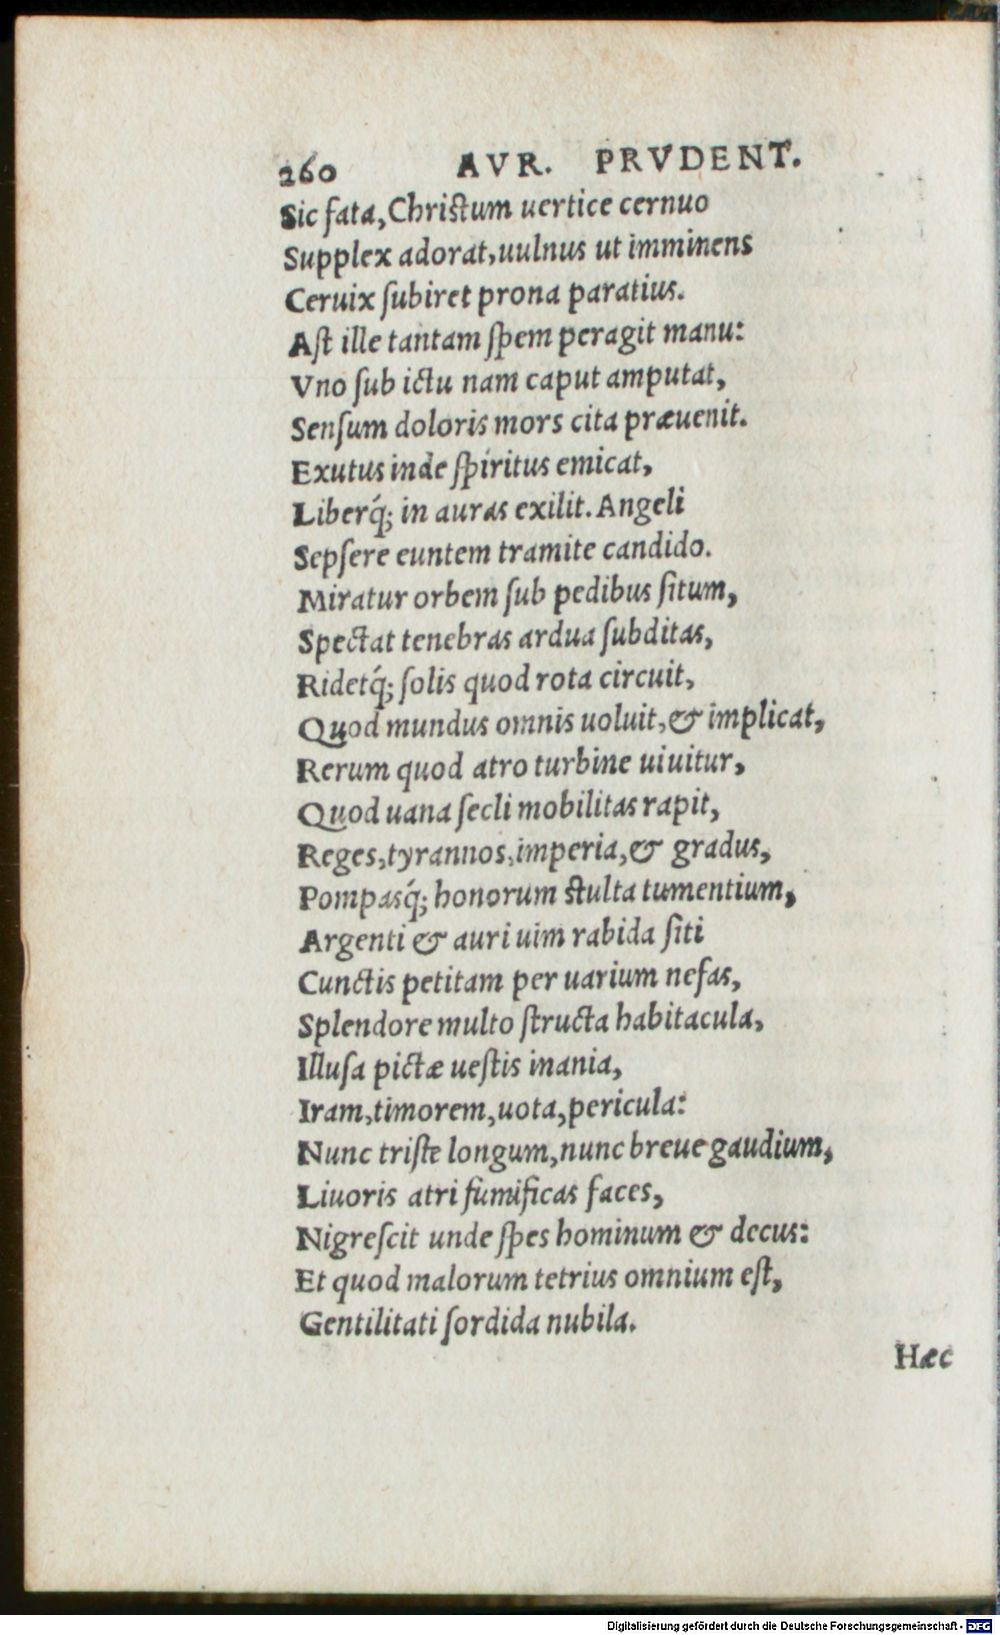 260 AVR. PRVDENT.
Sic fata, Christum uertice cernuo
Supplex adorat, uulnus ut imminens
Ceruix ſubiret prona paratius.
Aſt ille tantam ſpem peragit manu:
Vno ſub ictu nam caput amputat,
Senſum doloris mors cita præuenit.
Exutus inde ſpiritus emicat,
Liberq́; in auras exilit. Angeli
Sepſere euntem tramite candido.
Miratur orbem ſub pedibus ſitum,
Spectat tenebras ardua ſubditas,
Ridetq́; ſolis quod rota circuit,
Quod mundus omnis uoluit, & implicat,
Rerum quod atro turbine uiuitur,
Quod uana ſecli mobilitas rapit,
Reges, tyrannos, imperia, & gradus,
Pompasq́; honorum stulta tumentium,
Argenti & auri uim rabida ſiti
Cunctis petitam per uarium nefas,
Splendore multo ſtructa habitacula,
Illuſa pictæ ueſtis inania,
Iram, timorem, uota, pericula:
Nunc triſte longum, nunc breue gaudium,
Liuoris atri fumificas faces,
Nigreſcit unde ſpes hominum & decus:
Et quod malorum tetrius omnium eſt,
Gentilitati ſordida nubila.
Hæc
Digitalisierung gefördert durch die Deutsche Forschungsgemeinschaft - DFG